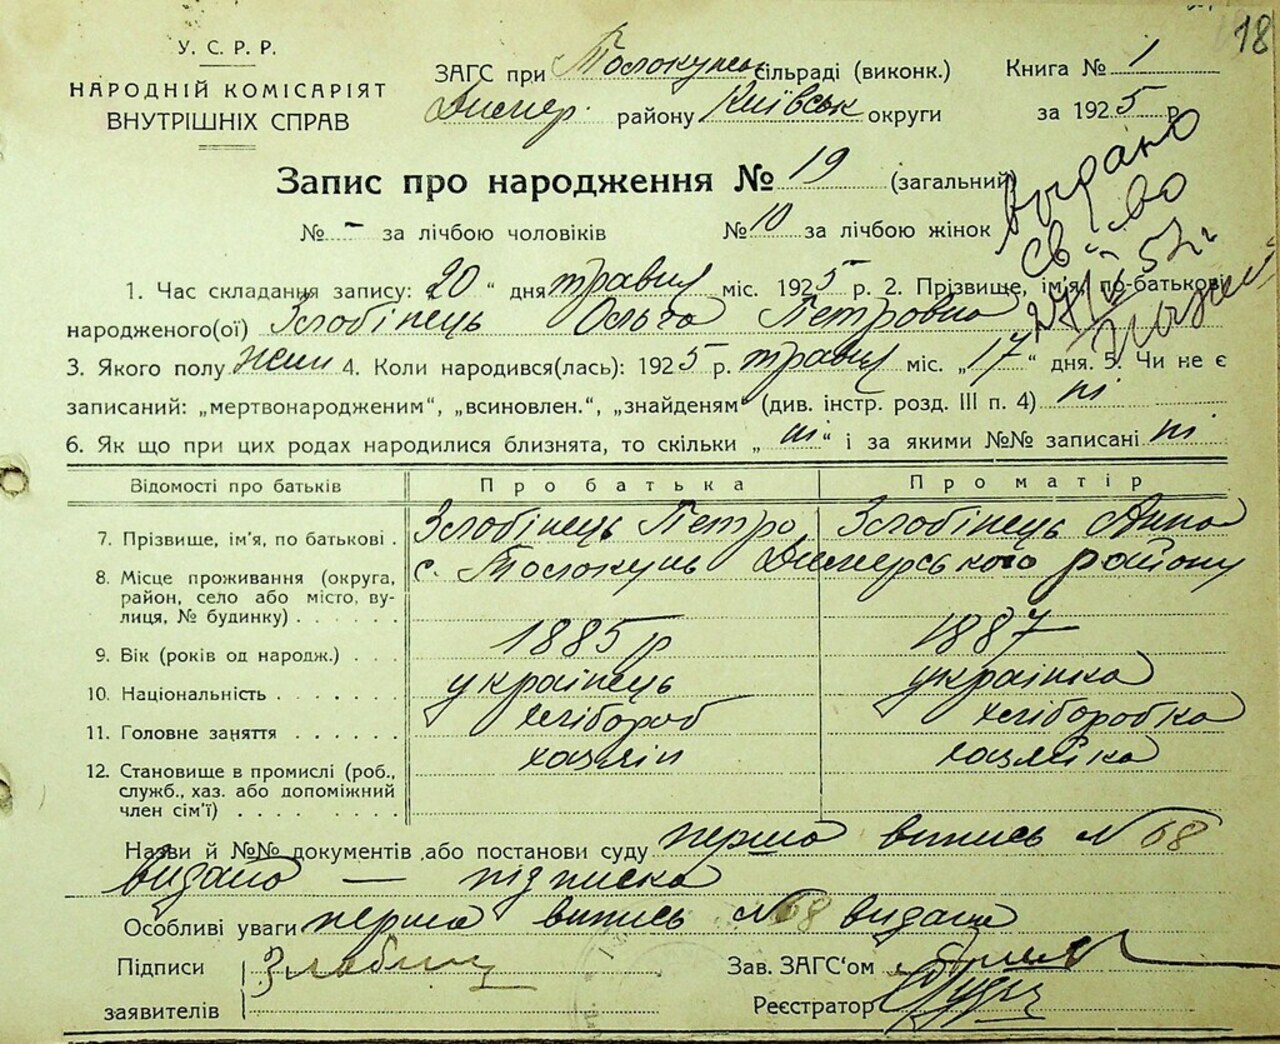 18
У. С. Р. Р.
НАРОДНІЙ КОМІСАРІЯТ
ВНУТРІШНІХ СПРАВ
ЗАГС при Толокунськ сільраді (виконк.)
Димер. району Київськ округи
Книга № 1
за 1925 р.
Запис про народження № 19 (загальний)
№ - за лічбою чоловіків № 10 за лічбою жінок
Выдано
св-во
1. Час складання запису: „20“ дня травня міс. 1925 р. 2. Прізвище, ім'я, по-батькові
народженого(ої) Злобінець Ольга Петровна
3. Якого полу жін 4. Коли народився(лась): 1925 р. травня міс. „17“ дня. 5. Чи не є
записаний: „мертвонародженим“, „всиновлен.“, „знайденям“ (див. інстр. розд. III п. 4) ні
6. Як що при цих родах народилися близнята, то скільки „ні“ і за якими №№ записані ні
Відомості про батьків Про батька Про матір
7. Прізвище, ім'я, по батькові . Злобінець Петро Злобінець Анна
8. Місце проживання (округа, с. Толокунь Димерського району
район, село або місто, ву-
лиця, № будинку) . . . . . .
9. Вік (років од народж.) . . . 1885 р 1887
10. Національність . . . . . . . українець українка
11. Головне заняття . . . . . . хлібороб хліборобка
12. Становище в промислі (роб., хазяїн хазяйка
служб., хаз. або допоміжний
член сім'ї) . . . . . . . . .
Назви й №№ документів або постанови суду перша випись № 68
видано — підписка
Особливі уваги перша випись № 68 видана
Підписи
заявителів
Зав. ЗАГС‘ом
Реєстратор